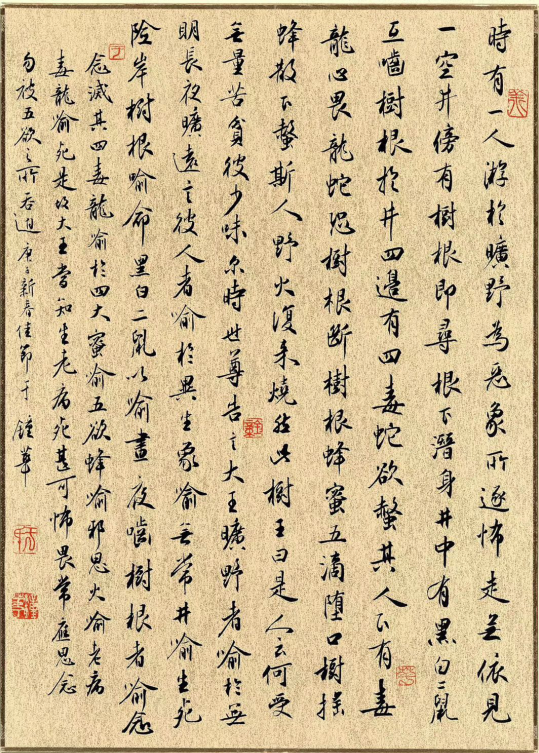 時有一人游於曠野為惡象所逐怖走無依見
一空井傍有樹根即尋根下潛身井中有黑白二鼠
互嚙樹根於井四邊有四毒蛇欲螫其人下有毒
龍心畏龍蛇恐樹根斷樹根蜂蜜五滴墮口樹搖
蜂散下螫斯人野火復來燒然此樹王曰是人云何受
無量苦貪彼少味尔時世尊告言大王曠野者喻於無
明長夜曠遠言彼人者喻於異生象喻無常井喻生死
險岸樹根喻命黑白二鼠以喻晝夜嚙樹根者喻念
念滅其四毒龍喻於四大蜜喻五欲蜂喻邪思火喻老病
毒龍喻死是故大王當知生老病死甚可怖畏常應思念
勿被五欲之所吞迫 庚子新春佳節于